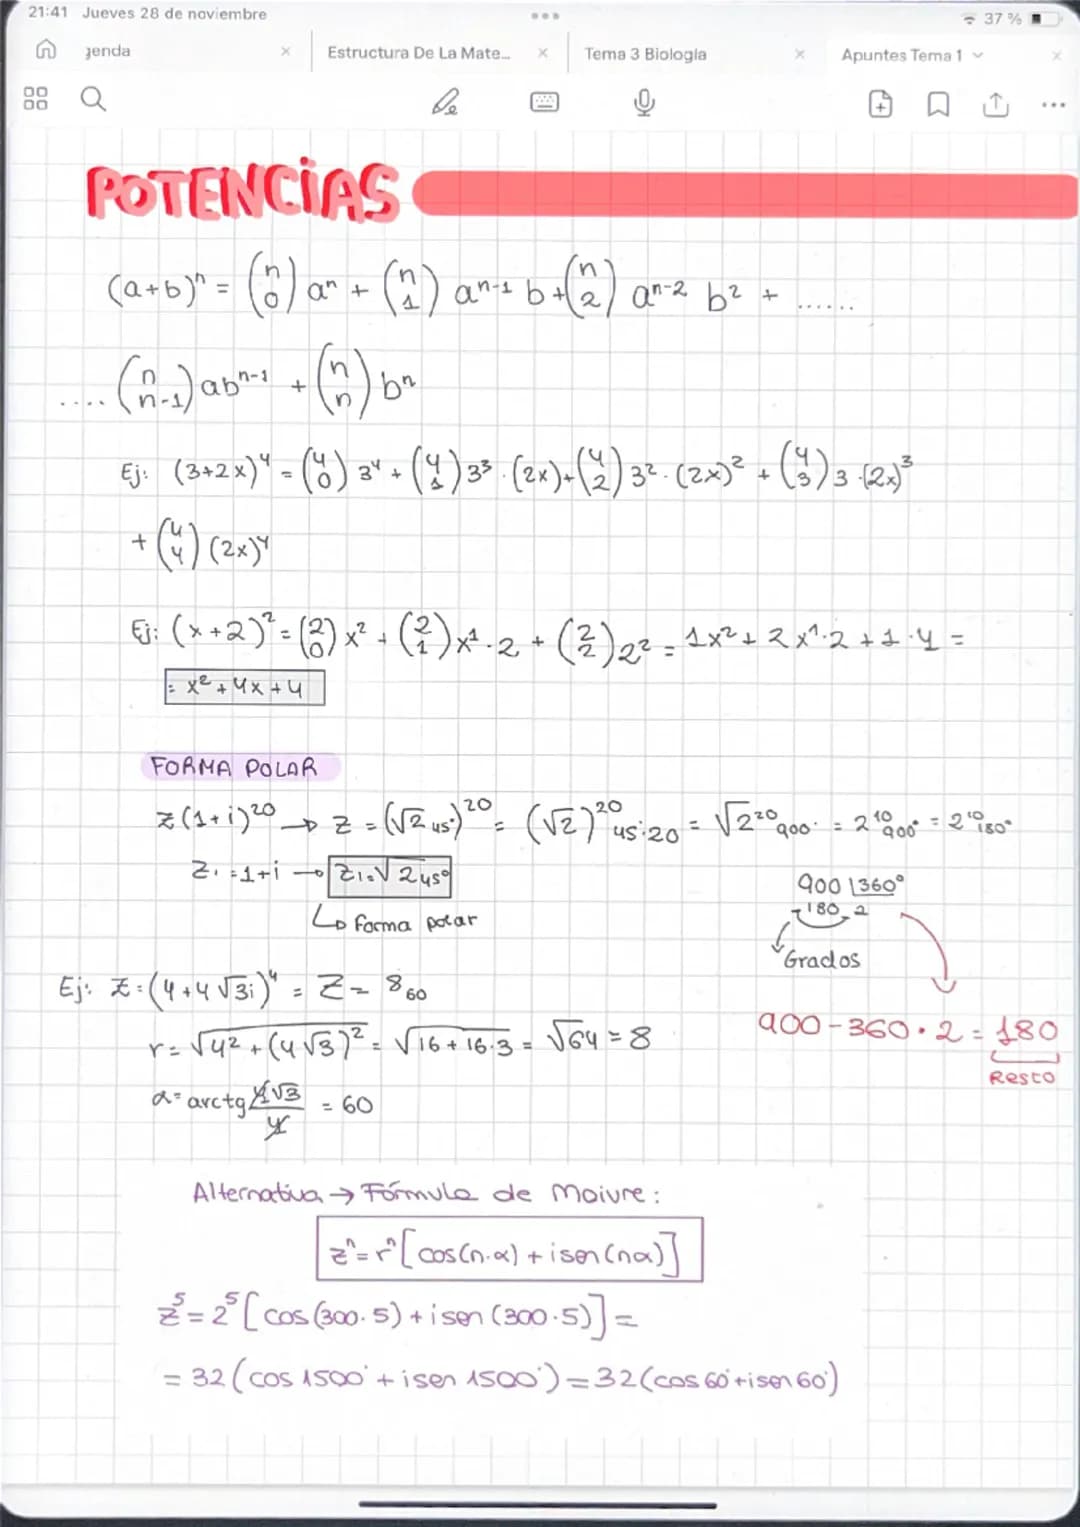 21:41 Jueves 28 de noviembre
37 %
genda × Estructura De La Mate... × Tema 3 Biología × Apuntes Tema 1 ×
POTENCIAS
(a+b)ⁿ = (n 0) aⁿ + (n 1) aⁿ⁻¹ b + (n 2) aⁿ⁻² b² + ......
.... (n n-1) abⁿ⁻¹ + (n n) bⁿ
Ej: (3+2x)⁴ = (4 0) 3⁴ + (4 1) 3³ · (2x) + (4 2) 3² · (2x)² + (4 3) 3 · (2x)³
+ (4 4) (2x)⁴
Ej: (x+2)² = (2 0) x² + (2 1) x¹ · 2 + (2 2) 2² = 1x² + 2x¹·2 + 1·4 =
= x² + 4x + 4
FORMA POLAR
z(1+i)²⁰ → z = (√2 45°)²⁰ = (√2)²⁰ 45·20 = √2²⁰ 900° = 2¹⁰ 900° = 2¹⁰ 180°
z₁ = 1+i → z₁ = √2 45°
↳ forma polar
900 | 360°
180 2
Grados
900 - 360 · 2 = 180
Resto
Ej: z = (4+4√3i)⁴ = z = 8 60
r = √4² + (4√3)² = √16 + 16·3 = √64 = 8
α = arctg 4√3/4 = 60
Alternativa → Fórmula de Moivre:
zⁿ = rⁿ [cos(n·α) + isen(nα)]
z⁵ = 2⁵ [cos(300·5) + isen(300·5)] =
= 32 (cos 1500° + isen 1500°) = 32 (cos 60° + isen 60°)